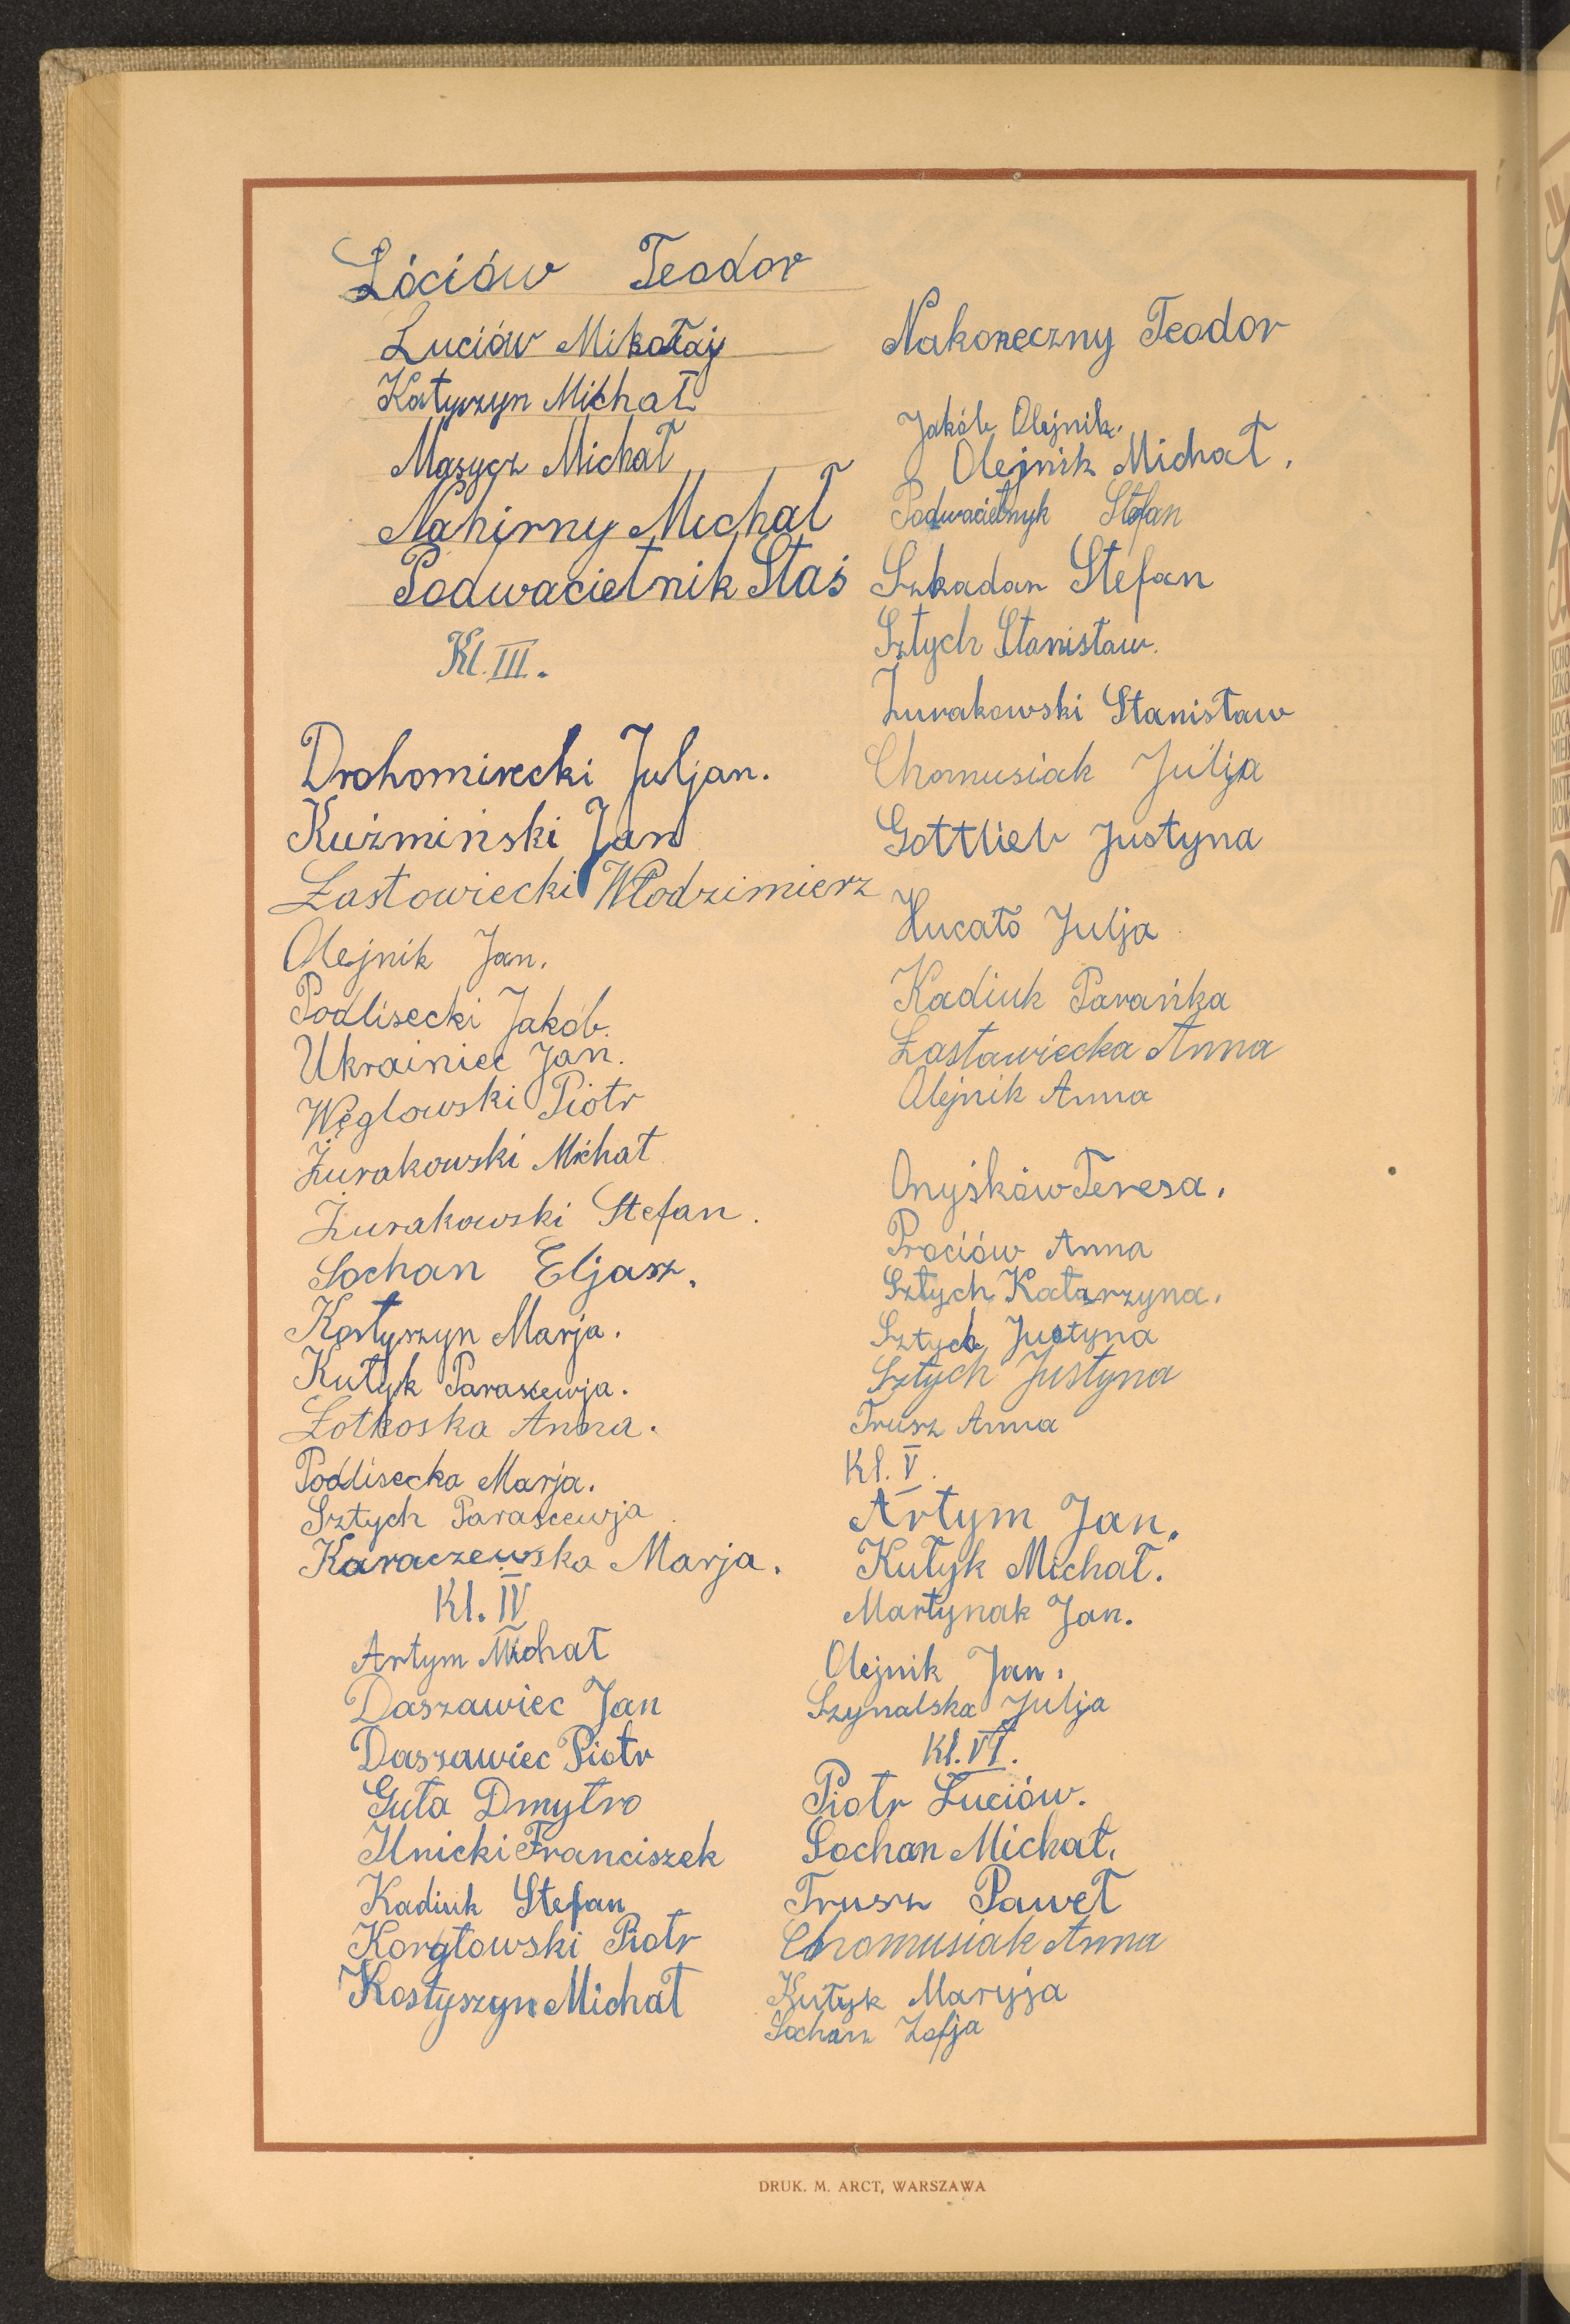 Lóciów Teodor
Luciów Mikołaj
Katyszyn Michał
Masycz Michał
Nahirny Michał
Podwacietnik Staś
Kl. III.
Drohomirecki Juljan.
Kuźmiński Jan
Łastowiecki Włodzimierz
Olejnik Jan.
Podlisecki Jakób.
Ukrainiec Jan.
Węglowski Piotr
Żurakowski Michał
Żurakowski Stefan.
Sochan Eljasz.
Kostyszyn Marja.
Kutyk Parascewja.
Łotkoska Anna.
Podlisecka Marja.
Sztych Parascewja.
Karaczewska Marja.
Kl. IV
Artym Michał
Daszawiec Jan
Daszawiec Piotr
Guła Dmytro
Ilnicki Franciszek
Kadiuk Stefan
Korgłowski Piotr
Kostyszyn Michał
Nakoneczny Teodor
Jakób Olejnik.
Olejnik Michał.
Podwacietnyk Stefan
Szkadan Stefan
Sztych Stanisław.
Żurakowski Stanisław
Chomusiak Julja
Gottlieb Justyna
Hucało Julja
Kadiuk Parańka
Łastawiecka Anna
Olejnik Anna
Onyśków Teresa.
Prociów Anna
Sztych Katarzyna.
Sztych Justyna
Sztych Justyna
Trusz Anna
Kl. V.
Artym Jan.
Kutyk Michał.
Martynak Jan.
Olejnik Jan.
Szynalska Julja
Kl. VI.
Piotr Łuciów.
Sochan Michał.
Trusz Paweł
Chomusiak Anna
Kutyk Maryja
Sochan Zofja
DRUK. M. ARCT, WARSZAWA